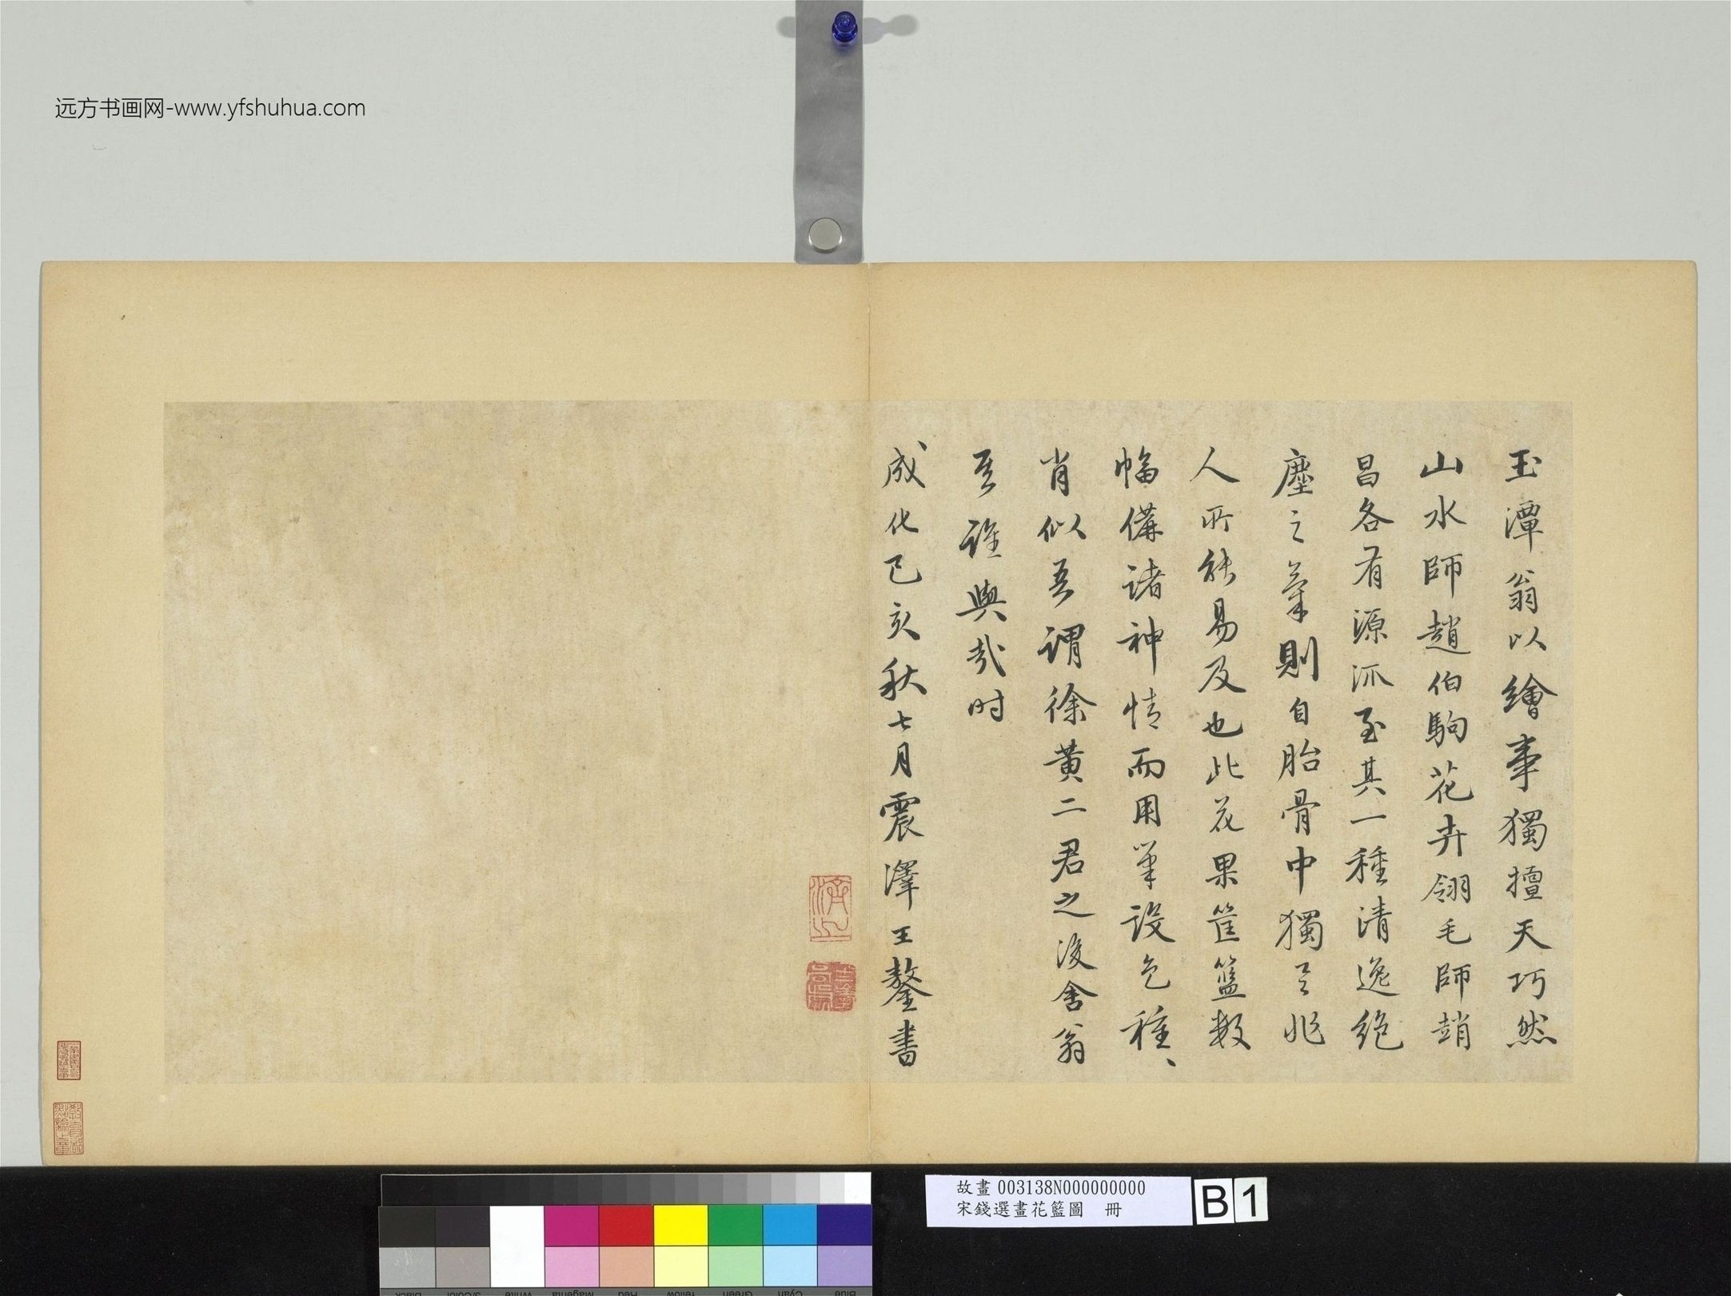 远方书画网-www.yfshuhua.com
玉潭翁以繪事獨擅天巧然
山水師趙伯駒花卉翎毛師趙
昌各有源派至其一種清逸絕
塵之氣則自胎骨中獨具非
人所能易及也此花果筐籃數
幅備諸神情而用筆設色種、
肖似吾謂徐黃二君之後舍翁
其誰與哉时
成化己亥秋七月震澤王鏊書
濟之
故畫 003138N000000000
宋錢選畫花籃圖 冊
B1